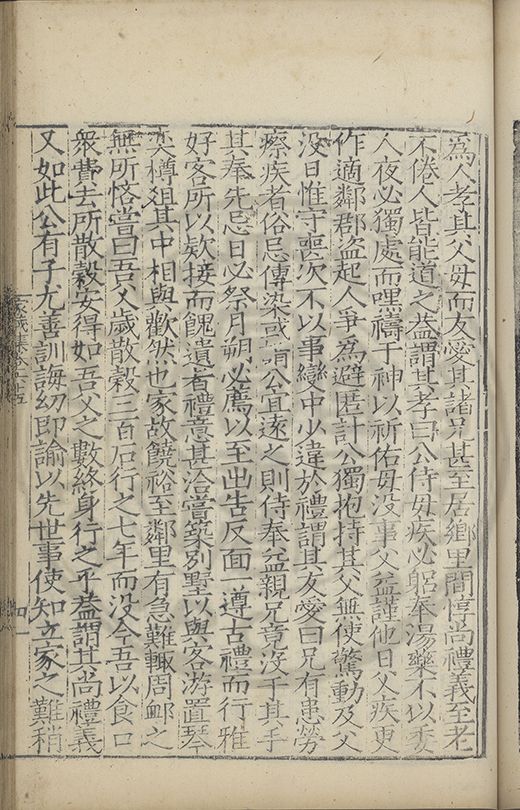 為人孝其父母而友愛其諸兄甚至居鄉里間惇尚禮義至老
不倦人皆能道之蓋謂其孝曰公侍母疾必躬奉湯藥不以委
人夜必獨處而嘿禱于神以祈佑母没事父益謹他日父疾更
作適鄰郡盗起人爭為避匿計公獨抱持其父無使驚動及父
没日惟守喪次不以事變中少違於禮謂其友愛曰兄有患勞
瘵疾者俗忌傳染或謂公宜遠之則侍奉益親兄竟没于其手
其奉先忌日必祭月朔必薦以至出告反面一遵古禮而行雅
好客所以欵接而餽遺者禮意甚洽嘗築别墅以與客游置琴
奕樽爼其中相與歡然也家故饒裕至鄰里有急難輙周卹之
無所恡嘗曰吾父歲散榖三百石行之七年而没今吾以食口
衆費去所散榖安得如吾父之數終身行之不益謂其尚禮義
又如此公有子尤善訓誨幼即諭以先世事使知立家之難稍